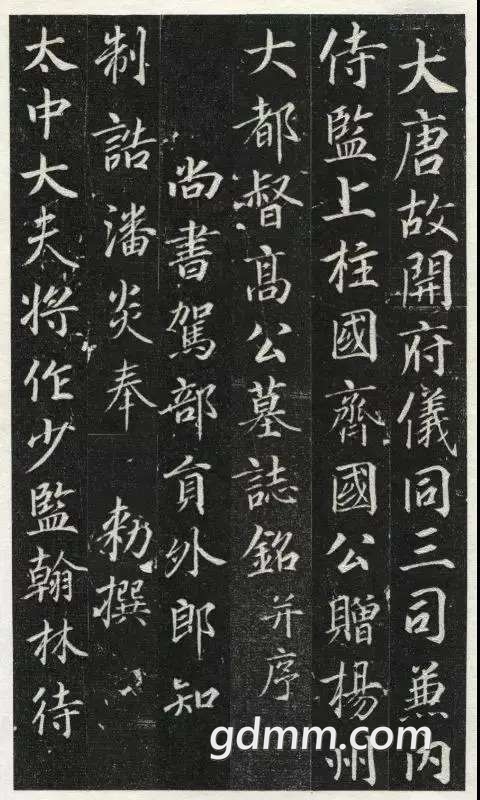 大唐故開府儀同三司兼内
侍監上柱國齊國公贈楊州
大都督高公墓誌銘并序
尚書駕部員外郎知
制誥潘炎奉 勑撰
太中大夫將作少監翰林待
gdmm.com